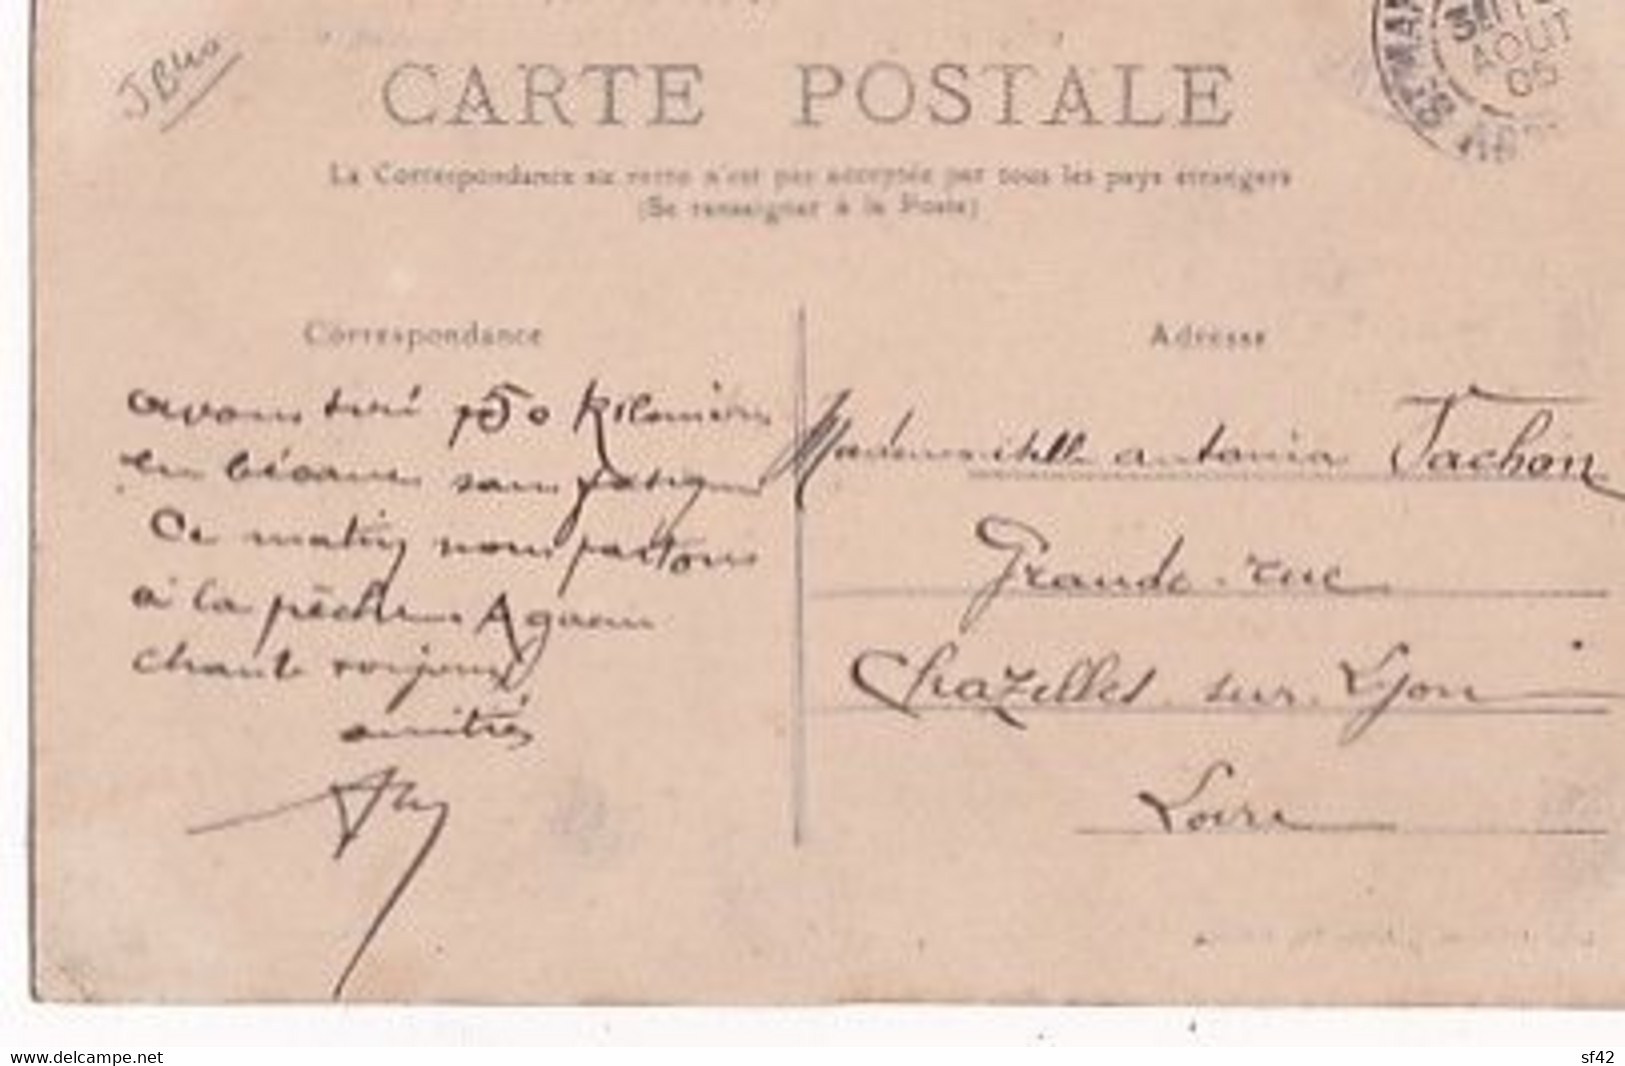 JB
CARTE POSTALE
ST MAR
AOUT
05
La Correspondance au recto n'est pas acceptée par tous les pays étrangers
(Se renseigner à la Poste)
Correspondance
avons tiré 150 Kilomètres
en bécane sans fatigue
Ce matin nous partons
à la pêche
chante toujours
amitiés
Adresse
Mademoiselle antonia Vachon
Grande rue
Chazelles sur Lyon
Loire
www.delcampe.net
sf42